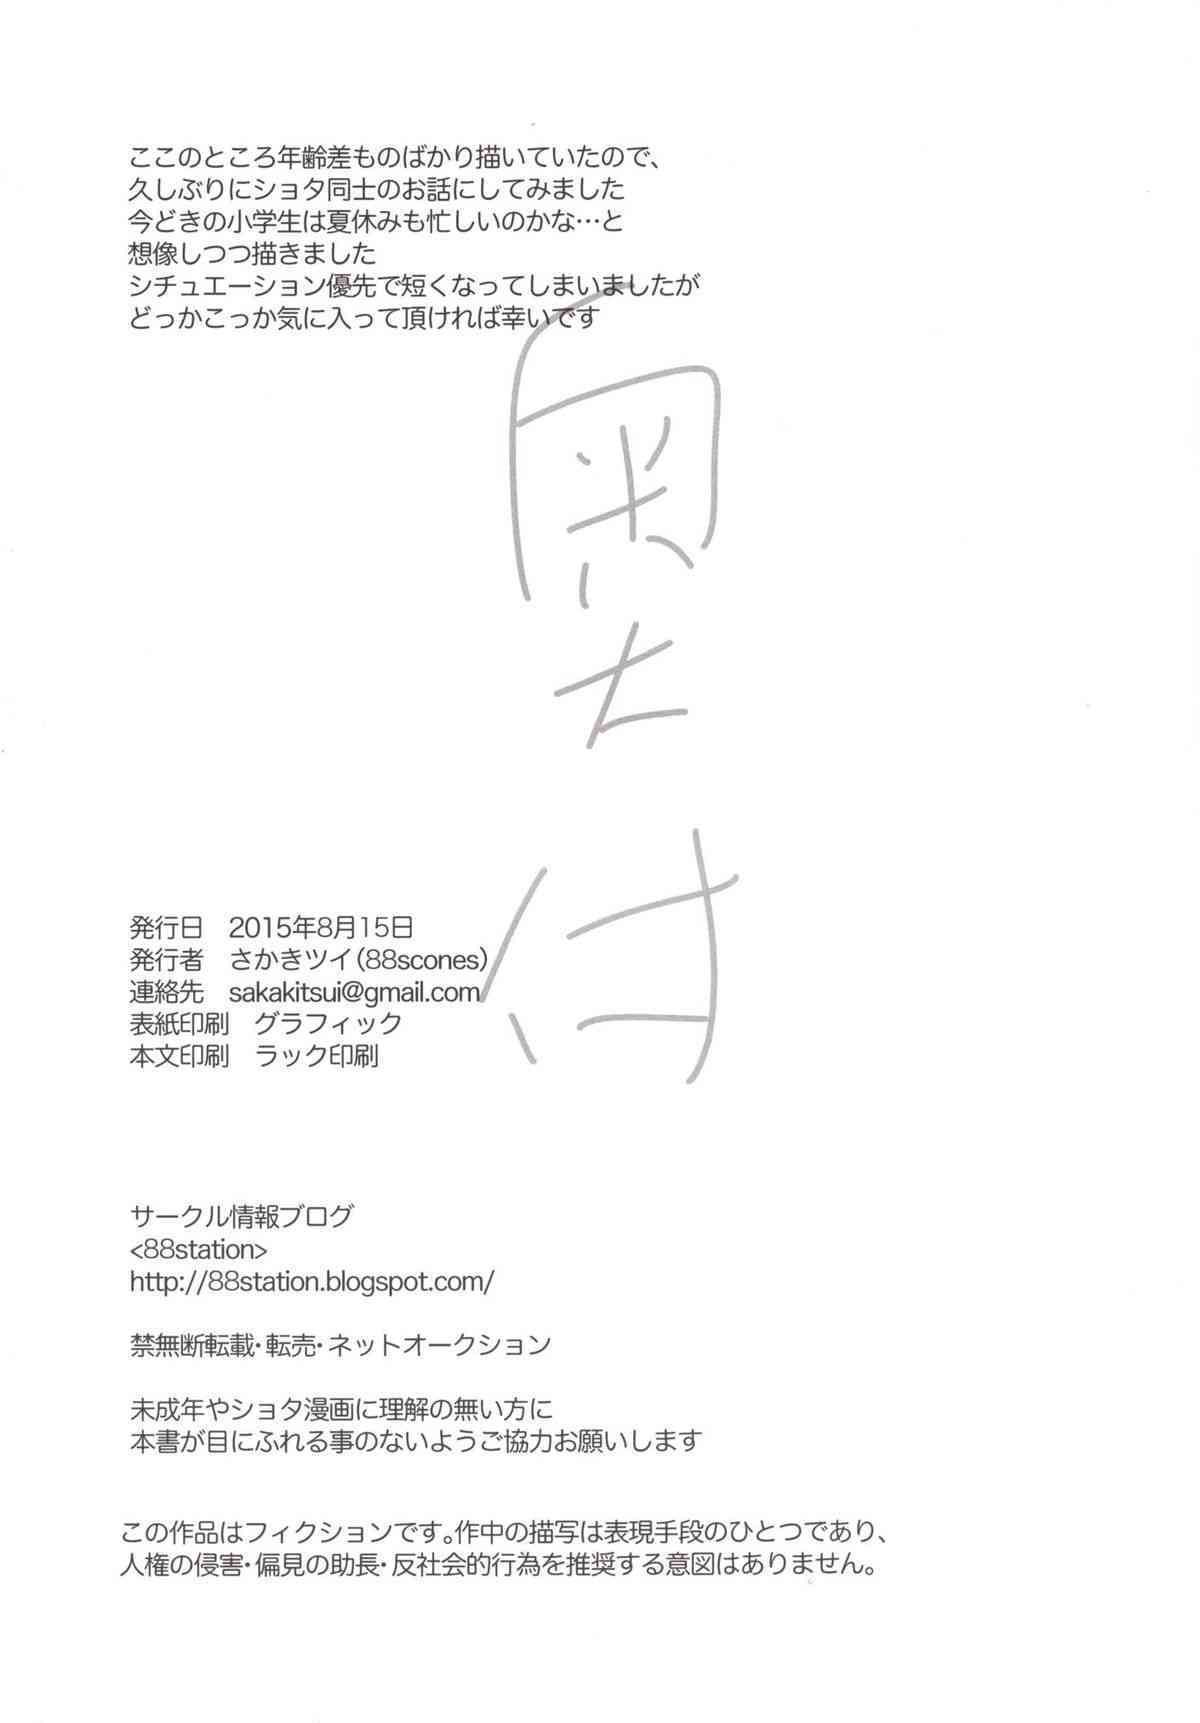 ここのところ年齢差ものばかり描いていたので、
久しぶりにショタ同士のお話にしてみました
今どきの小学生は夏休みも忙しいのかな…と
想像しつつ描きました
シチュエーション優先で短くなってしまいましたが
どっかこっか気に入って頂ければ幸いです
奥付
発行日　2015年8月15日
発行者　さかきツイ(88scones)
連絡先　sakakitsui@gmail.com
表紙印刷　グラフィック
本文印刷　ラック印刷
サークル情報ブログ
<88station>
http://88station.blogspot.com/
禁無断転載・転売・ネットオークション
未成年やショタ漫画に理解の無い方に
本書が目にふれる事のないようご協力お願いします
この作品はフィクションです。作中の描写は表現手段のひとつであり、
人権の侵害・偏見の助長・反社会的行為を推奨する意図はありません。